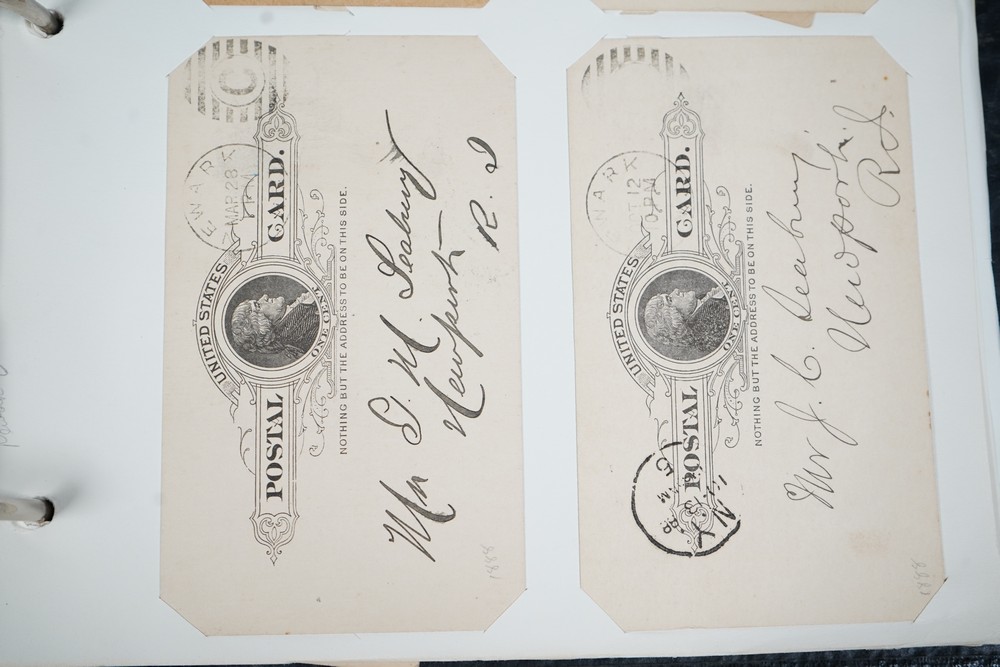 EWARK
MAR 28
C
UNITED STATES
POSTAL CARD.
ONE CENT
NOTHING BUT THE ADDRESS TO BE ON THIS SIDE.
Mr G. M. Seabury
Newport
R. I
1888
WARK
UNITED STATES
POSTAL CARD.
ONE CENT
NOTHING BUT THE ADDRESS TO BE ON THIS SIDE.
Mr J. C. Seabury
Newport
R I.
1888